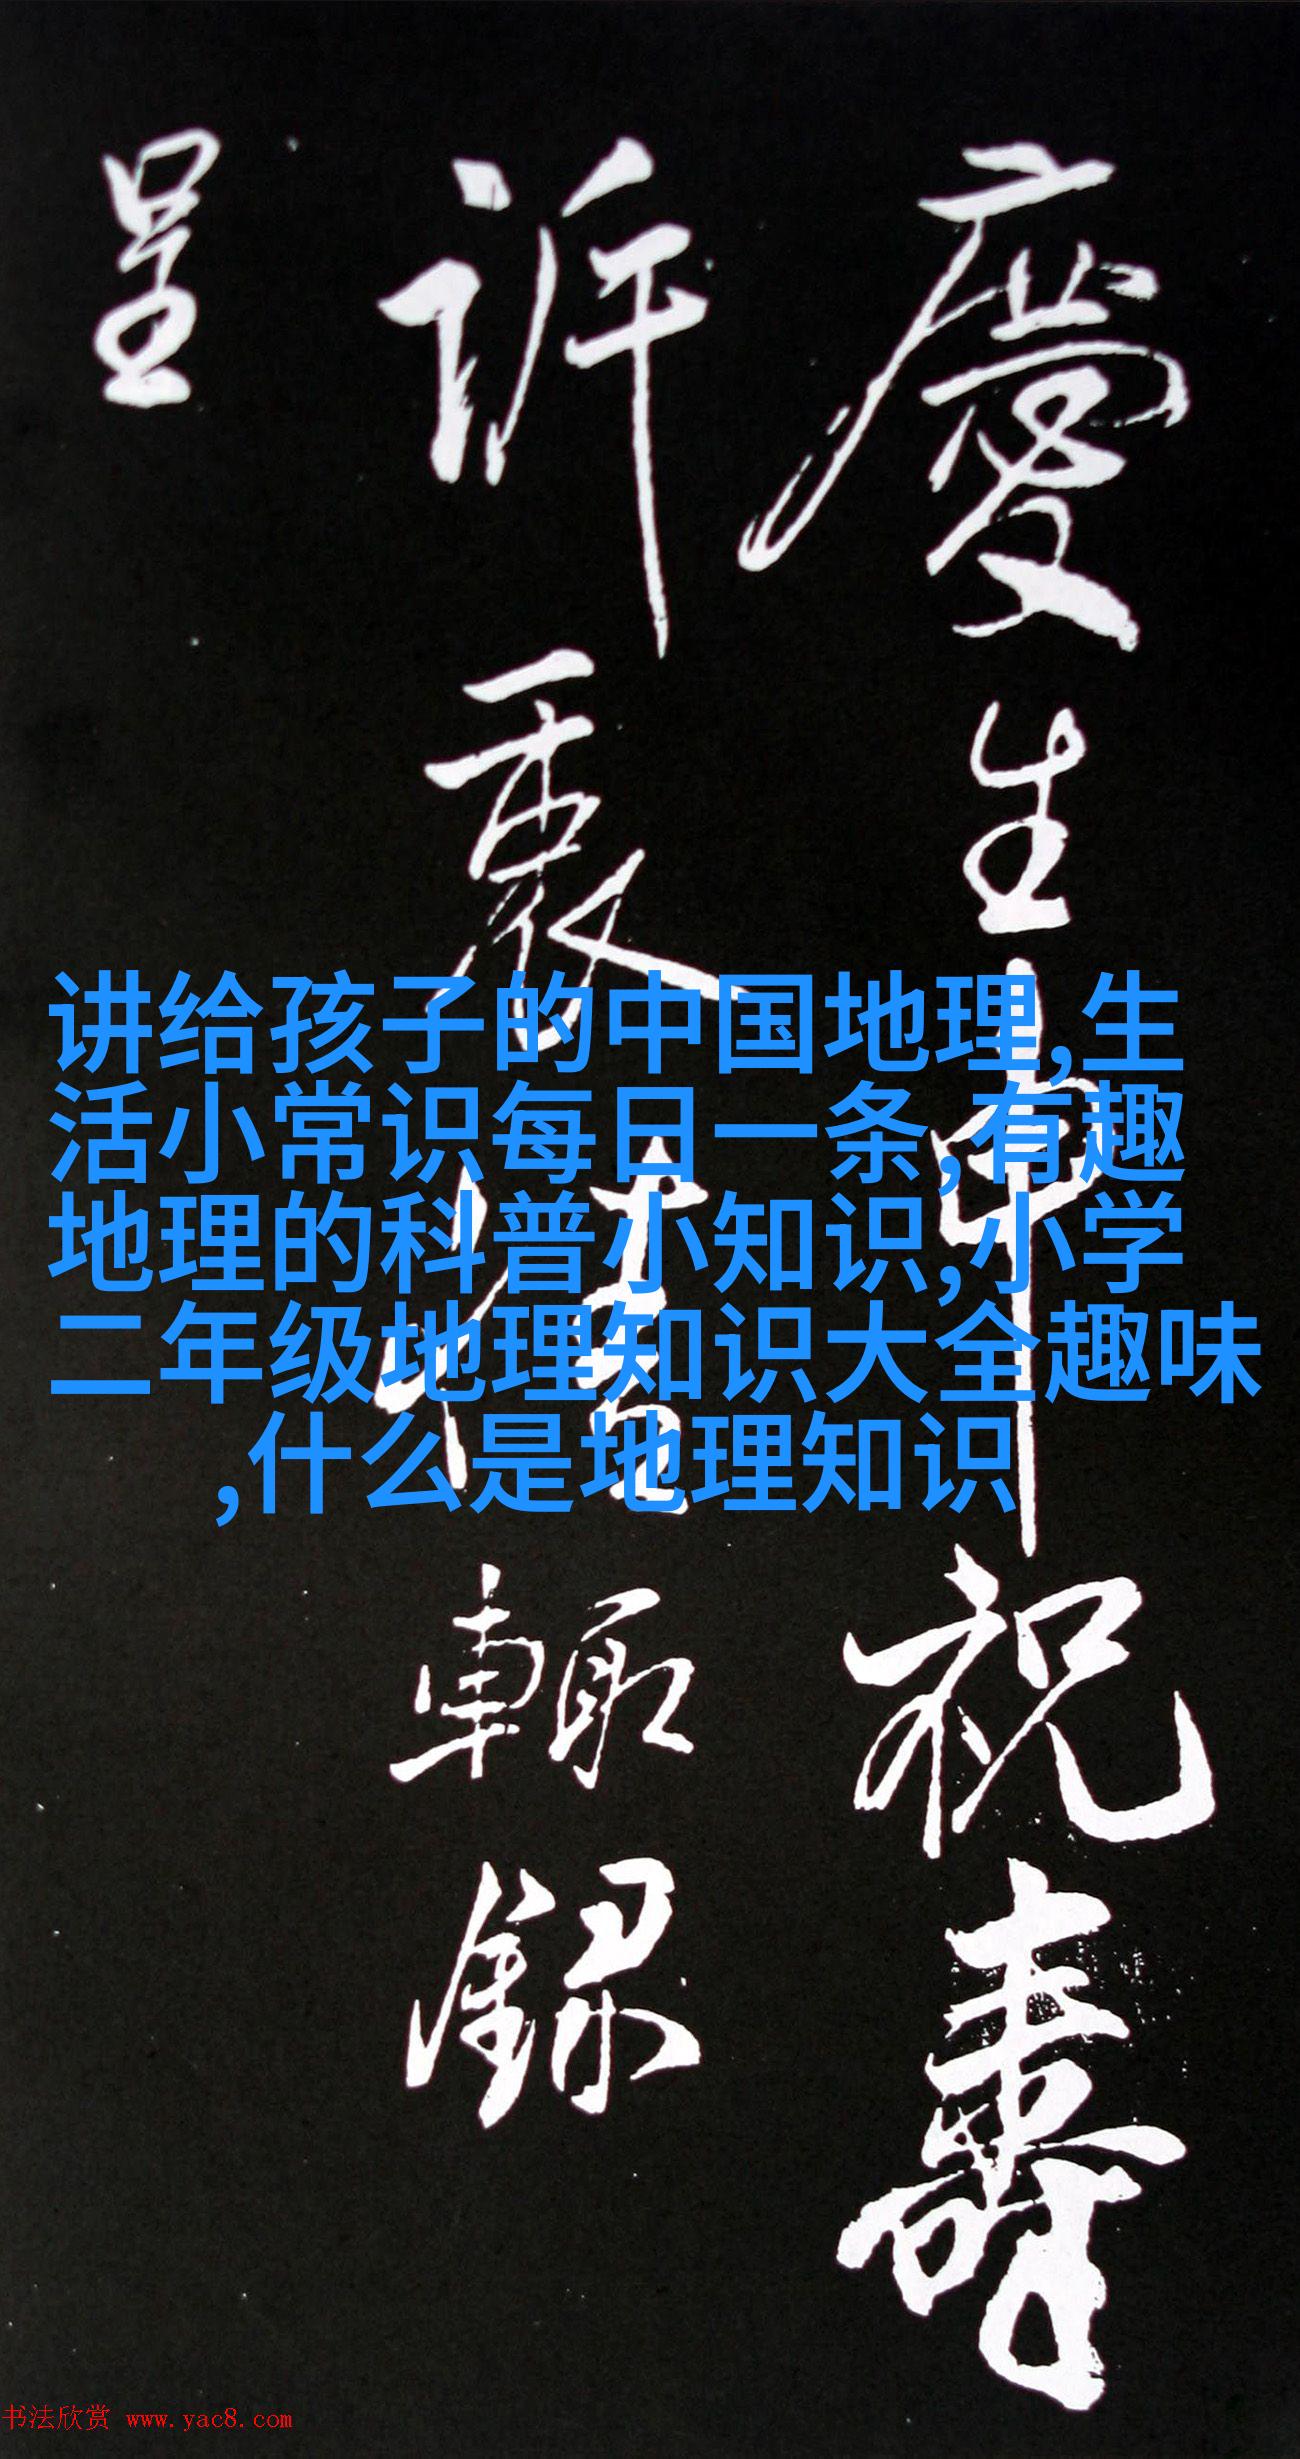 慶生申祝壽
訢衷情輒録
呈
讲给孩子的中国地理,生
活小常识每日一条,有趣
地理的科普小知识,小学
二年级地理知识大全趣味
,什么是地理知识
书法欣赏 www.yac8.com